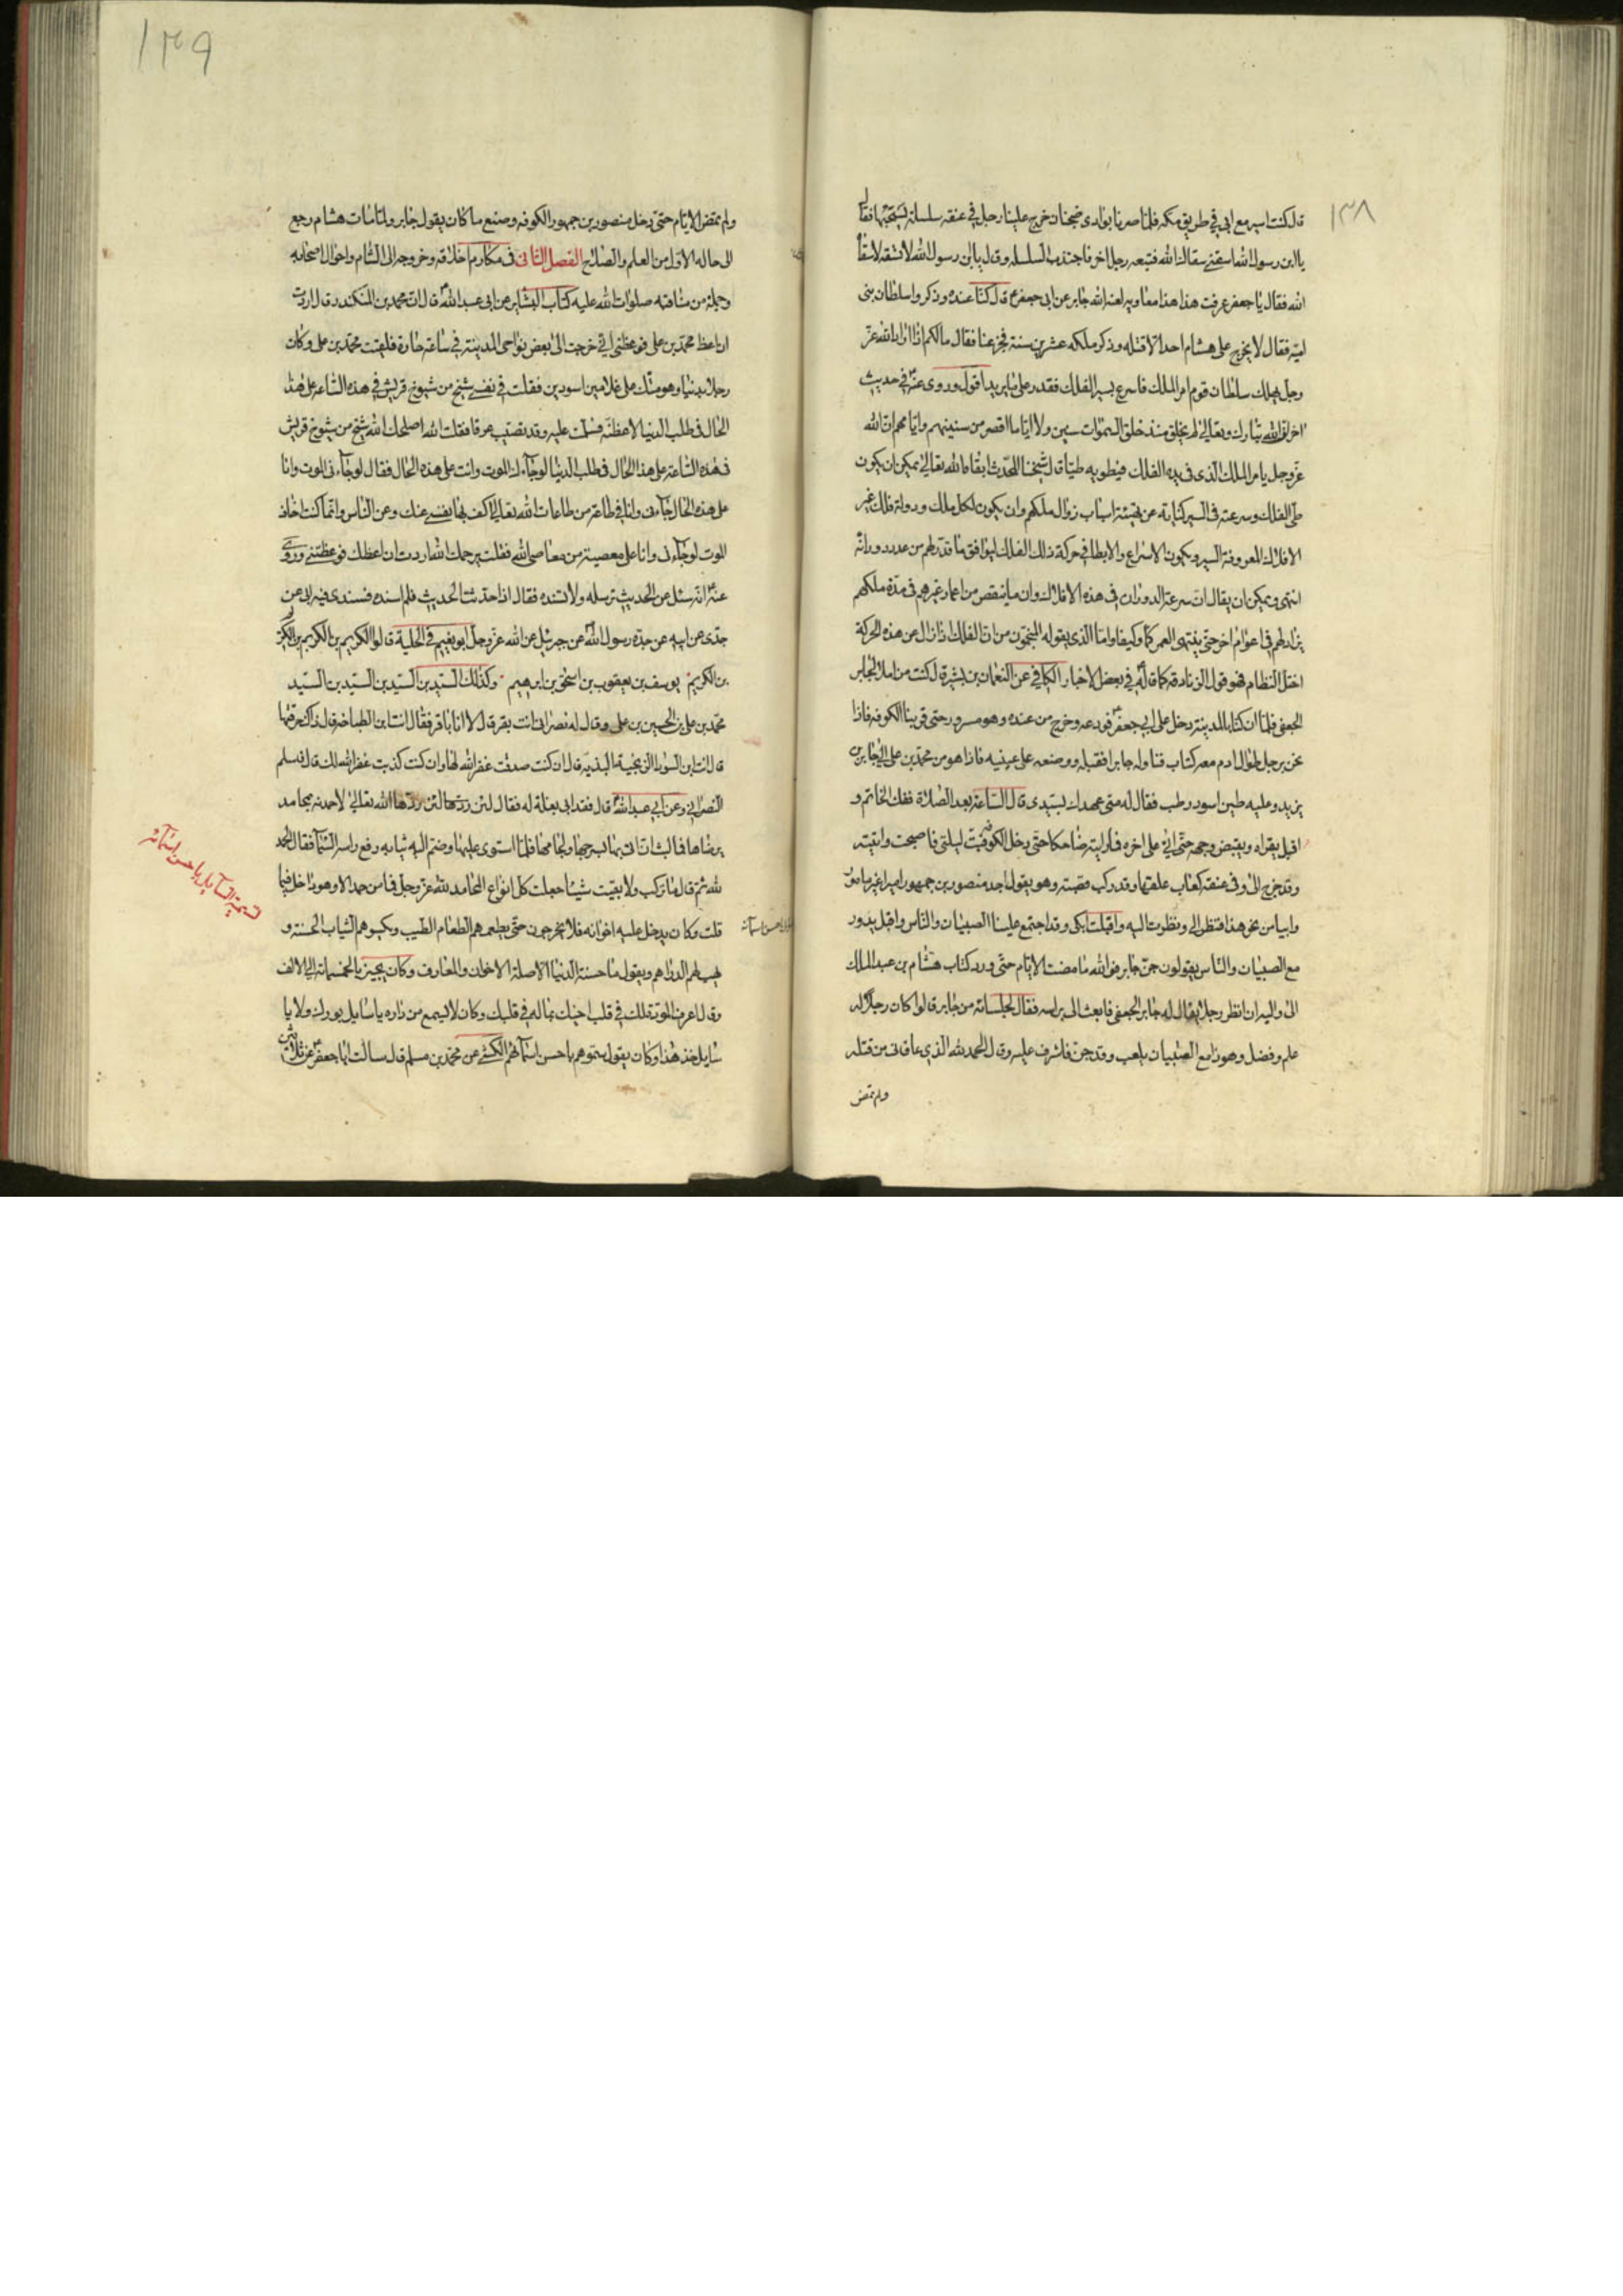 ١٣٨
قال كنت اسير مع ابي في طريق مكه فلما صرنا بوادى ضجنان خرج علينا رجل في عنقه سلسلة يسحبها فقال
يا ابن رسول الله اسقني سقاك الله فتبعه رجل اخر فاجتذب السلسله وقال يا ابن رسول الله لا تسقه لا سقاه
الله فقال يا جعفر عرفت هذا هذا معاويه لعنه الله جابر عن ابى جعفر ع قال كنا عنده وذكروا سلطان بنى
اميّه فقال لا يخرج على هشام احد الا قتله وذكر ملكه عشرين سنة فجزعنا فقال مالكم اذا اراد الله عزّ
وجل يهلك سلطان قوم امر الملك فاسرع بسير الفلك فقدر على ما يريد اقول وروى عنه في حديث
اخر ان الله تبارك وتعالى لم يخلق منذ خلق السموات سنين ولا اياما اقصر من سنينهم وايامهم ان الله
عزّ وجل يامر الملك الذى فى يده الفلك فيطويه طيّا قال شيخنا المحدّث ابقاه الله تعالى يمكن ان يكون
طىّ الفلك وسرعته فى السير كناية عن تهيئة اسباب زوال ملكهم وان يكون لكل ملك ودولة فلك غير
الافلاك المعروفة السير ويكون الاسراع والابطا في حركة ذلك الفلك ليوافق ما قدّر لهم من عدد دورانه
انتهى ويمكن ان يقال ان سرعة الدوران في هذه الافلاك وان ما ينقص من اعمار غيرهم فى مدّة ملكهم
يزاد لهم في اعوام اخر حتى ينتهى العمر كمّا وكيفا واما الذى يقوله المنجّمون من ان الفلك اذا زال عن هذه الحركة
اختلّ النظام فهو قول الزنادقة كما قاله في بعض الاخبار الكافي عن النعمان بن بشير قال كنت مزاملا لجابر
الجعفى فلما ان كنا بالمدينة دخل على ابي جعفر فودعه وخرج من عنده وهو مسرور حتى قربنا الكوفه فاذا
نحن برجل طوال ادم معه كتاب فناوله جابرا فقبله ووضعه على عينيه فاذا هو من محمد بن على الى جابر بن
يزيد وعليه طين اسود رطب فقال له متى عهدك بسيّدى قال السّاعة بعد الصّلاة ففك الخاتم و
اقبل يقراه ويقبض وجهه حتّى اتى على اخره فما رايته ضاحكا حتى دخل الكوفه فبتّ ليلتى فاصبحت واتيته
وقد خرج الىّ وفى عنقه كعاب علقها وقد ركب قصبة وهو يقول اجد منصور بن جمهور اميرا غير مامور
وابياتا من نحو هذا فنظر الى ونظرت اليه واقبلت ابكى وقد اجتمع علينا الصبيان والناس واقبل يدور
مع الصبيان والنّاس يقولون جنّ جابر فوالله ما مضت الايام حتّى ورد كتاب هشام بن عبد الملك
الى واليه ان انظر رجلا يقال له جابر الجعفى فابعث الى براسه فقال لجلسائه من جابر قالوا كان رجلا له
علم وفضل وهو ذا مع الصّبيان يلعب وقد جنّ فاشرف عليه وقال الحمد لله الذي عافانى من قتله
ولم تمض
١٣٩
ولم تمض الايّام حتّى دخل منصور بن جمهور الكوفه وصنع ما كان يقول جابر ولما مات هشام رجع
الى حاله الاوّل من العلم والصّلاح الفصل الثانى فى مكارم اخلاقه وخروجه الى الشام واحوال اصحابه
وجملة من مناقبه صلوات الله عليه كتاب البشاير عن ابى عبد الله ع قال ان محمد بن المنكدر قال اردت
ان اعظ محمّد بن على فوعظنى انى خرجت الى بعض نواحى المدينة في ساعة حارة فلقيت محمّد بن على وكان
رجلا بدينا وهو متّك على غلامين اسودين فقلت في نفسى شيخ من شيوخ قريش في هذه السّاعه على هذا
الحال فى طلب الدنيا لاعظنّه فسلمت عليه وقد تصتب عرقا فقلت له اصلحك الله شيخ من شيوخ قريش
فى هذه السّاعة على هذا الحال فى طلب الدنيا لو جاءك الموت وانت على هذه الحال فقال لو جاءنى الموت وانا
على هذه الحال جاءنى وانا في طاعة من طاعات الله تعالى اكفّ بها نفسى عنك وعن النّاس وانّما كنت اخاف
الموت لو جاءنى وانا على معصية من معاصى الله فقلت يرحمك الله اردت ان اعظك فوعظتنى وروى
عنه انّه سئل عن الحديث ترسله ولا تسنده فقال اذا حدّثت الحديث فلم اسنده فسندى فيه ابى عن
جدّى عن ابيه عن جدّه رسول الله عن جبرئيل عن الله عزّ وجلّ ابو نعيم فى الحلية قالوا الكريم بن الكريم بن الكريم
بن الكريم يوسف بن يعقوب بن اسحق بن ابرهيم وكذلك السّيد بن السّيد بن السّيد بن السّيد
محمّد بن على بن الحسين بن على وقال له نصرانى انت بقر قال لا انا باقر فقال انت ابن الطباخه قال ذاك حرفتها
قال انت ابن السوداء الزنجية البذيه قال ان كنت صدقت غفر الله لها وان كنت كذبت غفر الله لك قال فسلم
النصرانى وعن ابي عبد الله ع قال فقد ابى بغلة له فقال لئن ردّها الله تعالى لاحمدنه بمحامد
يرضاها فما لبث ان اتى بها بسرجها ولجامها فلمّا استوى عليها وضمّ اليه ثيابه رفع راسه الى السّما فقال الحمد
لله ثمّ قال ما تركت ولا بقيت شيئا جعلت كلّ انواع المحامد لله عزّ وجلّ فما من حمد الا وهو داخل فيما
قلت وكان يدخل عليه اخوانه فلا يخرجون حتّى يطعمهم الطّعام الطّيب ويكسوهم الثياب الحسنة و
يهب لهم الدراهم ويقول ما حسنة الدّنيا الا صلة الاخوان والمعارف وكان يجيز بالخمسمائة الى الالف
وقال اعرف المودّة لك فى قلب اخيك بما له في قلبك وكان لا يسمع من داره يا سايل بورك ولا يا
سايل خذ هذا وكان يقول سمّوهم باحسن اسمائهم الكشّى عن محمّد بن مسلم قال سالت ابا جعفر ع عن ثلاثين
تسمية السّايل باحسن اسمائه